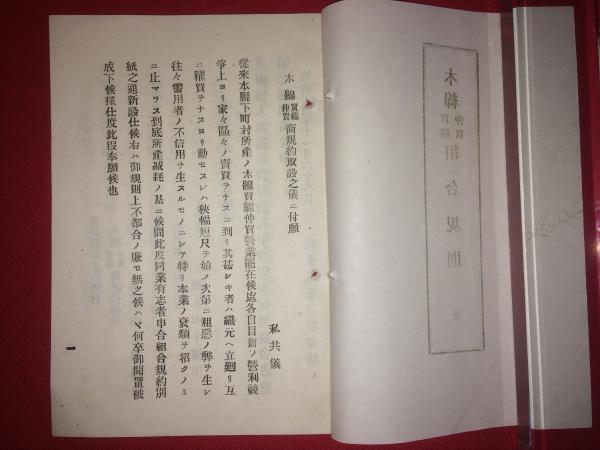 木綿買繼仲買商規約取設之儀ニ付願
私共儀
從來本縣下町村所產ノ木綿買繼仲買營業罷在候處各自目前ノ營利競
爭上ヨリ家々區々ノ賣買ヲナスニ到リ其甚シキ者ハ織元ヘ立廻リ互
ニ糴買ヲナスヨリ動モスレハ狹幅短尺ヲ始メ次第ニ粗惡ノ弊ヲ生シ
往々需用者ノ不信用ヲ生スルモノニシテ特リ本業ノ衰頽ヲ招クノミ
ニ止マラス到底所產減耗ノ基ニ候間此度同業有志者申合組合規約別
紙之通新設仕候右ハ御規則上不都合ノ廉モ無之候ハヾ何卒御聞置被
成下候樣仕度此段奉願候也
木綿仲買買繼組合規則 全